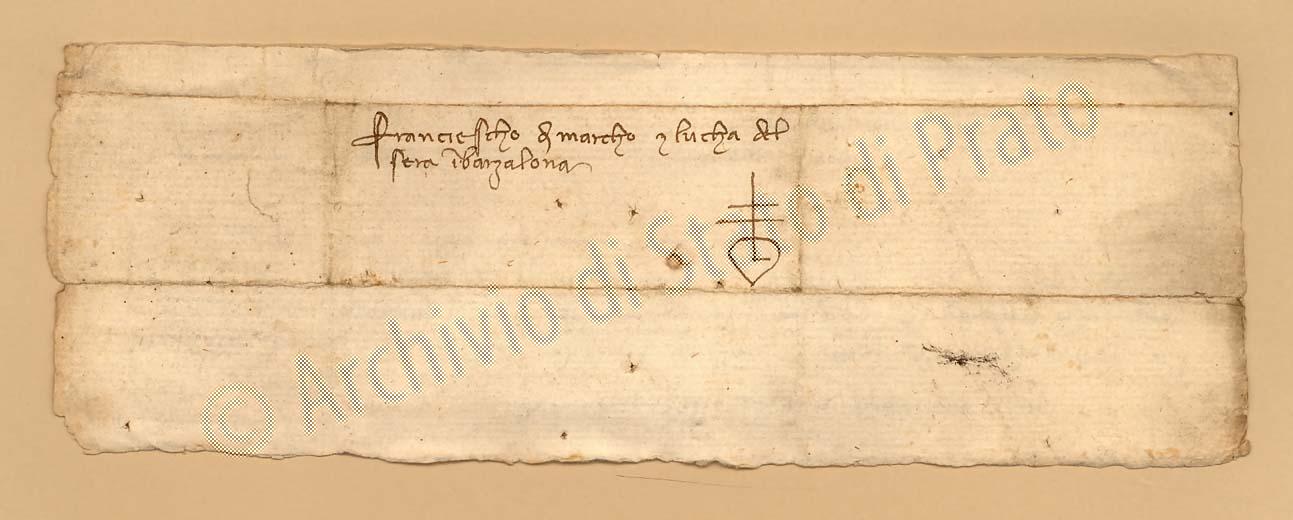 Franciescho di marcho e lucha del
sera in barzalona
© Archivio di Stato di Prato